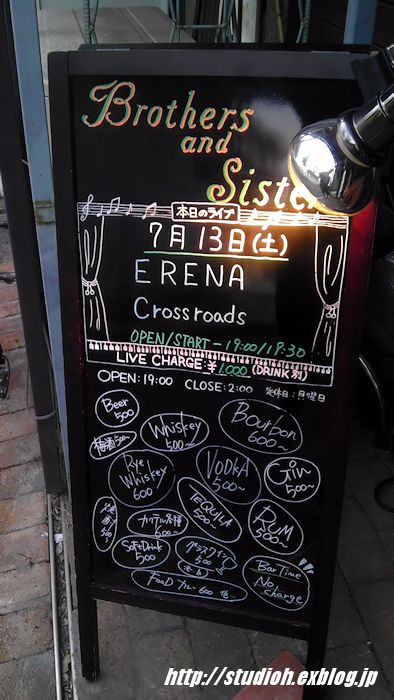 Brothers
and
Siste
本日のライブ
7月13日(土)
ERENA
Crossroads
OPEN/START - 19:00/19:30
LIVE CHARGE:¥1,000(DRINK別)
OPEN:19:00 CLOSE:2:00 定休日:月曜日
Beer
500
梅酒500~
Whiskey
500~
Bourbon
600~
Rye
Whiskey
600
VODKA
500~
Gin
500~
TEQUILA
500~
RUM
500~
焼酎
500
カクテル各種
600~
Soft Drink
500
グラスワイン
500
Bar Time
No charge
FOOD カレー600 他~
http://studioh.exblog.jp